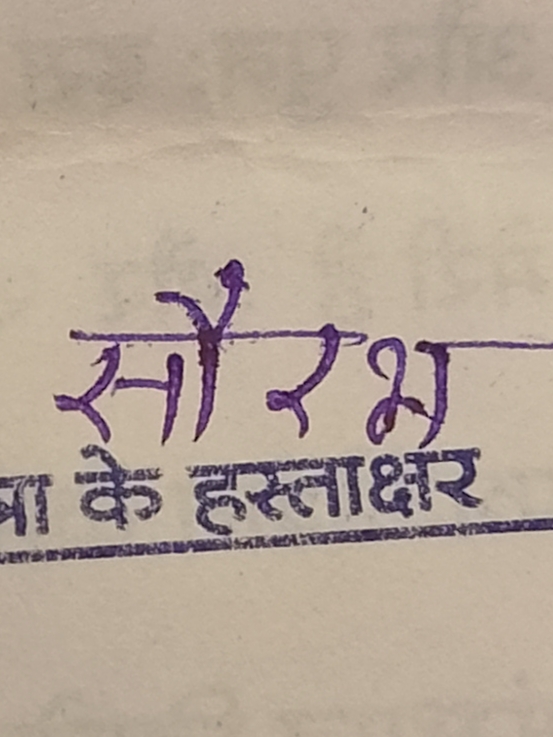 सौरभ
के हस्ताक्षर